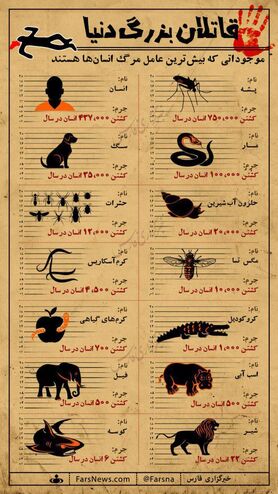 قاتلان بزرگ دنیا
موجوداتی که بیش‌ترین عامل مرگ انسان‌ها هستند
نام:
پشه
جرم:
کشتن ۷۵۰,۰۰۰ انسان در سال
نام:
انسان
جرم:
کشتن ۴۳۷,۰۰۰ انسان در سال
نام:
مار
جرم:
کشتن ۱۰۰,۰۰۰ انسان در سال
نام:
سگ
جرم:
کشتن ۳۵,۰۰۰ انسان در سال
نام:
حلزون آب‌شیرین
جرم:
کشتن ۲۰,۰۰۰ انسان در سال
نام:
حشرات
جرم:
کشتن ۱۲,۰۰۰ انسان در سال
نام:
مگس نما
جرم:
کشتن ۱۰,۰۰۰ انسان در سال
نام:
کرم‌آسکاریس
جرم:
کشتن ۴,۵۰۰ انسان در سال
نام:
کروکودیل
جرم:
کشتن ۱,۰۰۰ انسان در سال
نام:
کرم‌های گیاهی
جرم:
کشتن ۷۰۰ انسان در سال
نام:
اسب آبی
جرم:
کشتن ۵۰۰ انسان در سال
نام:
فیل
جرم:
کشتن ۵۰۰ انسان در سال
نام:
شیر
جرم:
کشتن ۲۲ انسان در سال
نام:
کوسه
جرم:
کشتن ۶ انسان در سال
خبرگزاری فارس | @Farsna | FarsNews.com